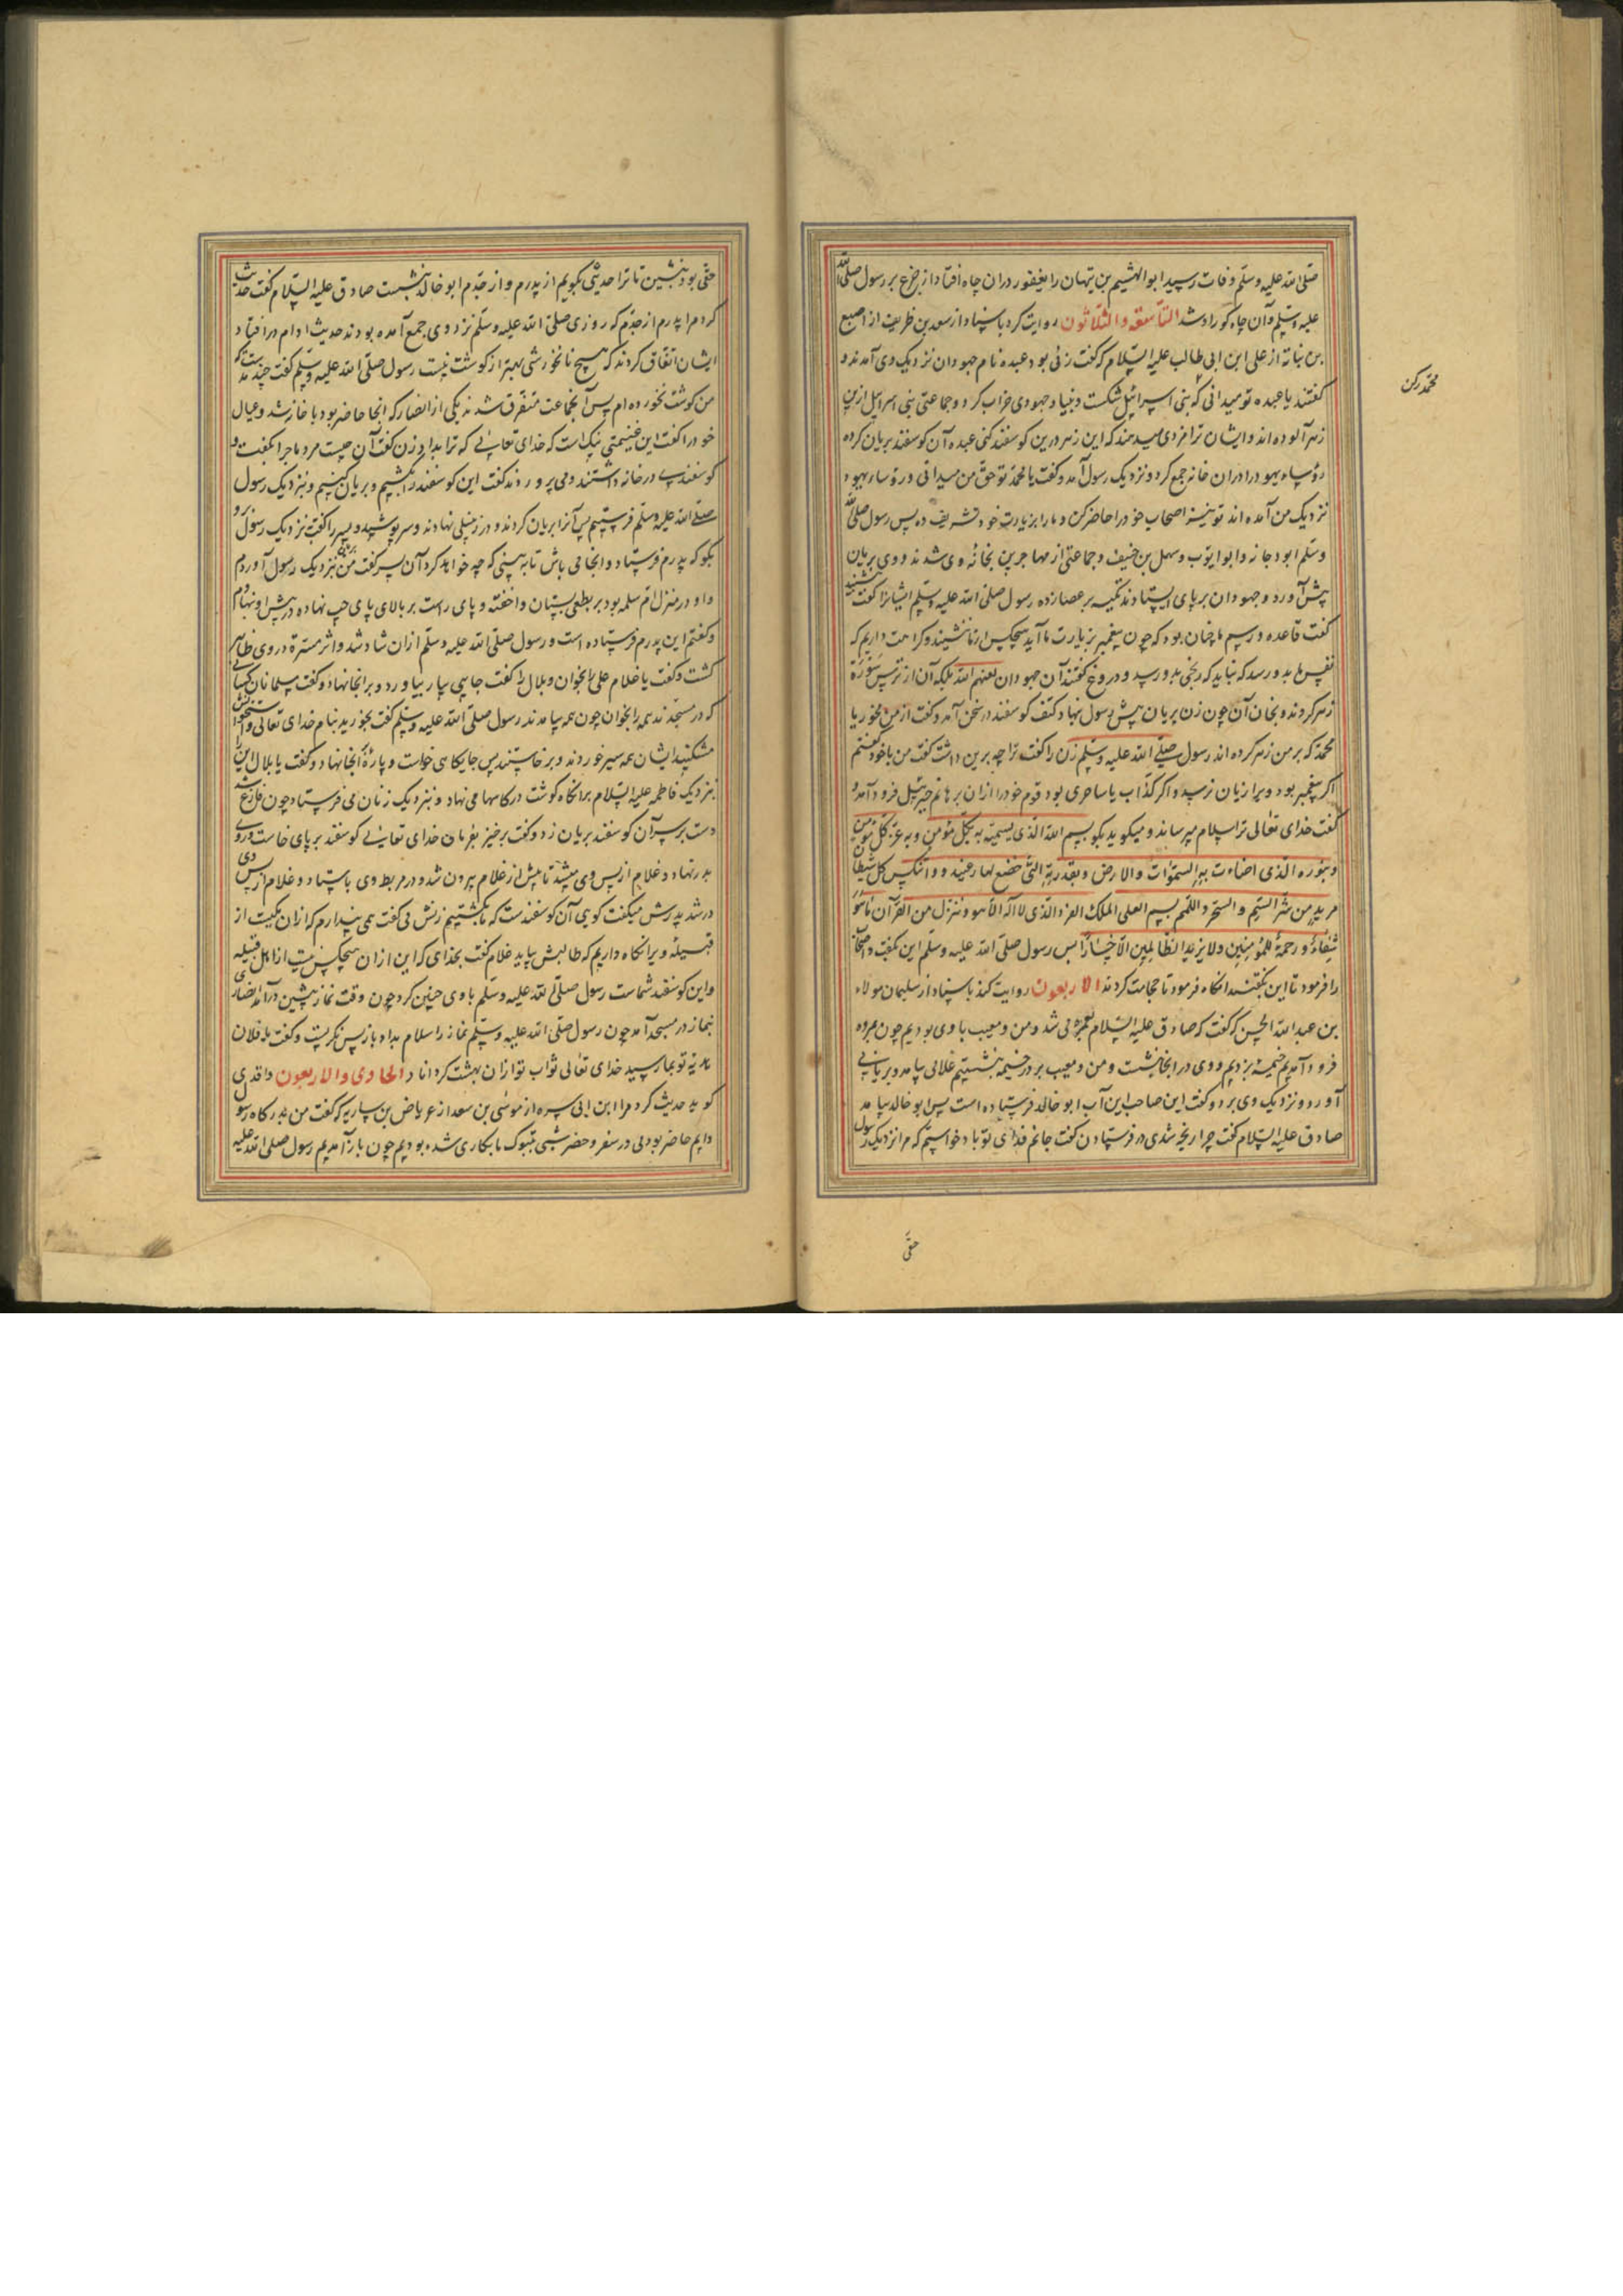 صلّی الله علیه وسلّم وفات رسید ابوالهیثم بن تیهان را یغفور دران چاه افتاد از جزع بر رسول صلی الله
علیه وسلّم وآن چاه کور او شد التاسعة والثلاثون روایت کرد باسناد از سعد بن ظریف از اصبغ
بن نباته از علی ابن ابی طالب علیه السّلام که گفت زنی بود عبده نام جهودان نزدیک وی آمدند و
محمد رکن
گفتند یا عبده تو میدانی که بنی اسرائیل شکست و بنیاد جهودی خراب کرد و جماعتی بنی اسرائیل ازین
زهر آلوده اند و ایشان ترا مزدی میدهند که این زهر درین کوسفند کنی عبده آن کوسفند بریان کرده
رؤساء یهود را دران خانه جمع کرد ونزدیک رسول آمد وگفت یا محمد تو حق من میدانی ورؤساء یهود
نزدیک من آمده اند تو نیز اصحاب خود را حاضر کن و مارا بزیارت خود تشریف ده پس رسول صلی الله
وسلم ابو دجانه و ابو ایوب وسهل بن حنیف وجماعتی از مهاجرین بخانهٔ وی شدند و وی بریان
پیش آورد و جهودان بر پای ایستادند تکیه بر عصا زده رسول صلی الله علیه وسلم ایشانرا گفت بنشینید
گفت قاعده ورسم ما چنان بود که چون پیغمبر بزیارت ما آید هیچکس از ما ننشیند وکراهت داریم که
نفس ما بدو رسد که نباید که رنجی بدو رسد و دروغ گفتند آن جهودان لعنهم الله بلکه آن از ترس سَوْرَة
زهر کردند و بخان آن چون زن بریان پیش رسول نهاد کتف کوسفند در سخن آمد وگفت از من مخور یا
محمد که بر من زهر کرده اند رسول صلی الله علیه وسلم زن را گفت ترا چه برین داشت گفت من با خود گفتم
اگر پیغمبر بود ویرا زیان نرسد و اگر کذّاب یا ساحری بود قوم خود را ازان برهانم جبرئیل فرود آمد و
گفت خدای تعالی ترا سلام میرساند و میگوید بگو بسم الله الذی یسمیه به کل مؤمن وبه عز کل مؤمن
وبنوره الذی اضاءت به السموات والارض وبقدرته التی خضع لها کل جبار عنید وانتکس کل شیطان
مرید من شر السم والسحر واللمم بسم العلی الملک الفرد الذی لا اله الا هو وننزل من القرآن ما هو
شفاء ورحمة للمؤمنین ولا یزید الظالمین الا خسارا پس رسول صلی الله علیه وسلم این بگفت و اصحاب
را فرمود تا این بگفتند انگاه فرمود تا حجامت کردند الاربعون روایت کند باسناد از سلیمان مولاء
بن عبد الله الحسن که گفت که صادق علیه السلام بعمره می شد و من ومعیب با وی بودیم چون بمروه
فرود آمدیم خیمه بزدیم و وی در انجا بنشست و من ومعیب بر در خیمه بنشستیم غلامی بیامد و بریانی
آورد و نزدیک وی برد وگفت این صاحب این آب ابو خالد فرستاده است پس ابو خالد بیامد
صادق علیه السلام گفت چرا رنجه شدی در فرستادن گفت جانم فدای تو باد خواستم که مرا نزدیک رسول
حقی
حقی بود بنشین تا ترا حدیثی بگویم از پدرم و از جدّم ابو خالد بنشست صادق علیه السلام گفت حدیث
کرد مرا پدرم از جدّم که روزی صلی الله علیه وسلم نزد وی جمع آمده بودند حدیث ادام در افتاد
ایشان اتفاق کردند که هیچ نانخورشی بهتر از کوشت نیست رسول صلی الله علیه وسلم گفت چند مدتست که
من کوشت نخورده ام پس آنجماعت متفرق شدند یکی از انصار که انجا حاضر بود با خانه شد وعیال
خود را گفت این غنیمتی نیک است که خدای تعالی که ترا بداد زن گفت آن چیست مرد ماجرا بگفت و
کوسفندی در خانه داشتند و می پروردند گفت این کوسفند را بکشیم و بریان کنیم و بنزدیک رسول
صلی الله علیه وسلم فرستیم پس آنرا بریان کردند و در زنبیلی نهادند وسر پوشید و پسر را گفت بنزدیک رسول رو
بگو که پدرم فرستاد و انجا می باش تا به بینی که چه خواهد کرد آن پسر گفت من بنزدیک رسول آوردم
واو در منزل ام سلمه بود بر نطعی بستان وا خفته و پای راست بر بالای پای چپ نهاده در پیش او نهادم
وگفتم این پدرم فرستاده است ورسول صلی الله علیه وسلم ازان شاد شد و اثر مسرة در وی ظاهر
گشت وگفت یا غلام علی را بخوان وبلال را گفت جاسی بیار بیاورد و برانجا نهاد وگفت مسلمانان کسانی
که در مسجدند همه را بخوان چون همه بیامدند رسول صلی الله علیه وسلم گفت بخورید بنام خدای تعالی و استخوان
مشکنید ایشان همه سیر خوردند و برخاستند پس جایکاسی خواست و پارهٔ انجا نهاد وگفت یا بلال این را
بنزدیک فاطمه علیها السلام بر انگاه کوشت در کاسها می نهاد و بنزدیک زنان می فرستاد چون فارغ شد
دست بر سر آن کوسفند بریان زد وگفت برخیز بفرمان خدای تعالی کوسفند بر پای خاست و روی
بدر نهاد و غلام از پس وی میشد تا پیش از غلام بیرون شد و در مربط وی باستاد و غلام از پس وی
درشد پدرش میگفت کویی آن کوسفندست که ما بکشتیم زنش می گفت همی پندارم که ازان یکیست از
قبیله ویرا نگاه داریم که طالبش بیاید غلام گفت بخدای که این ازان هیچکس نیست از اهل قبیله
واین کوسفند شماست رسول صلی الله علیه وسلم باوی چنین کرد چون وقت نماز پیشین درآمد انصاری
بنماز در مسجد آمد چون رسول صلی الله علیه وسلم نماز را سلام بداد باز پس نگریست وگفت یا فلان
هدیهٔ تو بما رسید خدای تعالی ثواب تو ازان بهشت کرداناد الحادی والاربعون واقدی
کوید حدیث کرد مرا ابن ابی سبره از موسی بن سعد از عرباض بن ساریه که گفت من بدرکاه رسول
دایم حاضر بودمی در سفر وحضر شبی بتبوک ما بکاری شده بودیم چون باز آمدیم رسول صلی الله علیه